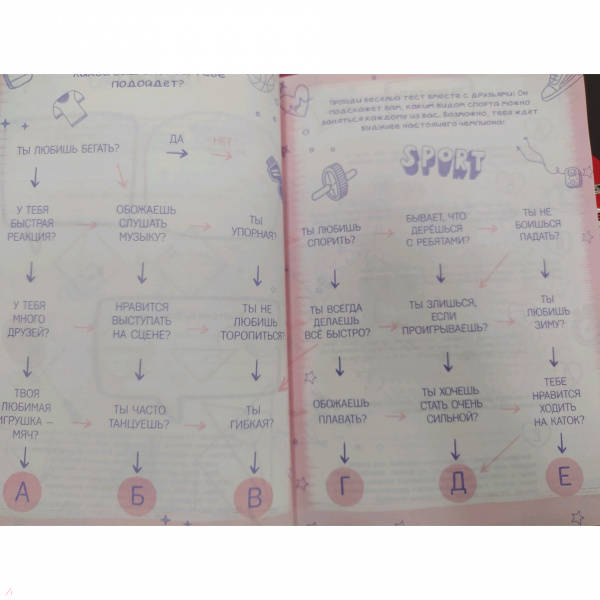 подойдет?
Пройди веселый тест вместе с друзьями! Он
подскажет вам, каким видом спорта можно
заняться каждому из вас. Возможно, тебя ждёт
будущее настоящего чемпиона!
SPORT
ДА
НЕТ
ТЫ ЛЮБИШЬ БЕГАТЬ?
У ТЕБЯ
БЫСТРАЯ
РЕАКЦИЯ?
ОБОЖАЕШЬ
СЛУШАТЬ
МУЗЫКУ?
ТЫ
УПОРНАЯ?
ТЫ ЛЮБИШЬ
СПОРИТЬ?
БЫВАЕТ, ЧТО
ДЕРЁШЬСЯ
С РЕБЯТАМИ?
ТЫ НЕ
БОИШЬСЯ
ПАДАТЬ?
У ТЕБЯ
МНОГО
ДРУЗЕЙ?
НРАВИТСЯ
ВЫСТУПАТЬ
НА СЦЕНЕ?
ТЫ НЕ
ЛЮБИШЬ
ТОРОПИТЬСЯ?
ТЫ ВСЕГДА
ДЕЛАЕШЬ
ВСЁ БЫСТРО?
ТЫ ЗЛИШЬСЯ,
ЕСЛИ
ПРОИГРЫВАЕШЬ?
ТЫ
ЛЮБИШЬ
ЗИМУ?
ТВОЯ
ЛЮБИМАЯ
ИГРУШКА –
МЯЧ?
ТЫ ЧАСТО
ТАНЦУЕШЬ?
ТЫ
ГИБКАЯ?
ОБОЖАЕШЬ
ПЛАВАТЬ?
ТЫ ХОЧЕШЬ
СТАТЬ ОЧЕНЬ
СИЛЬНОЙ?
ТЕБЕ
НРАВИТСЯ
ХОДИТЬ
НА КАТОК?
А
Б
В
Г
Д
Е